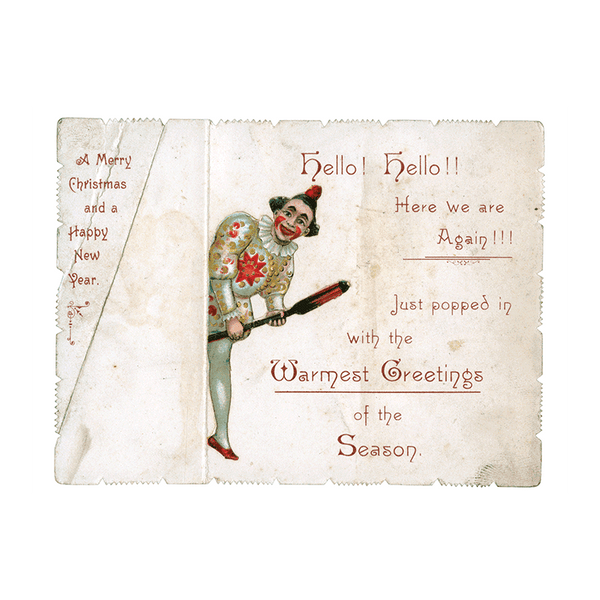 A Merry
Christmas
and a
Happy
New
Year.
Hello! Hello!!
Here we are
Again!!!
Just popped in
with the
Warmest Greetings
of the
Season.